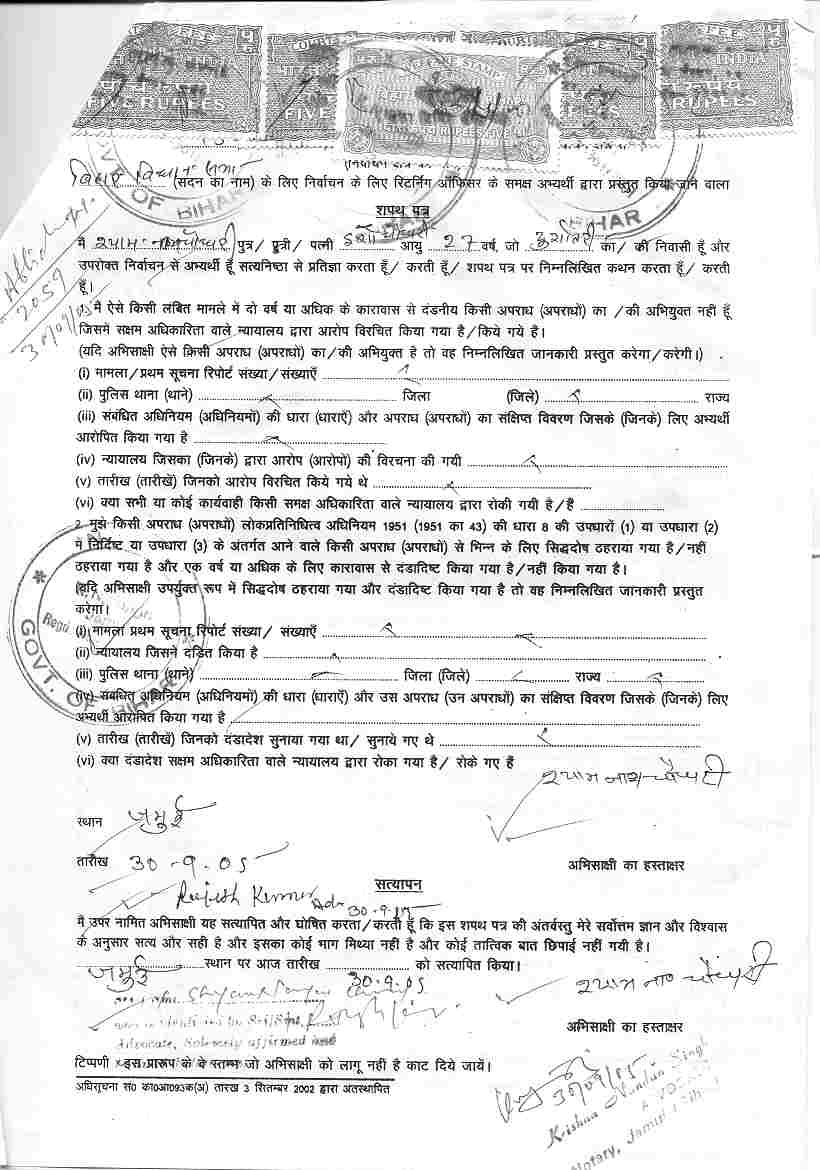 COURT FEE
INDIA
FIVE RUPEES
FIVE
FIVE
INDIA
RUPEES
GOVT. OF BIHAR
BIHAR
बिहार विधान सभा (सदन का नाम) के लिए निर्वाचन के लिए रिटर्निंग ऑफिसर के समक्ष अभ्यर्थी द्वारा प्रस्तुत किया जाने वाला
शपथ पत्र
2059
30/09/05
मै श्याम चौधरी पुत्र/ पुत्री/ पत्नी चौधरी आयु 27 वर्ष, जो का/ की निवासी हूँ और
उपरोक्त निर्वाचन से अभ्यर्थी हूँ सत्यनिष्ठा से प्रतिज्ञा करता हूँ/ करती हूँ/ शपथ पत्र पर निम्नलिखित कथन करता हूँ/ करती
हूँ।
1) मै ऐसे किसी लंबित मामले में दो वर्ष या अधिक के कारावास से दंडनीय किसी अपराध (अपराधों) का /की अभियुक्त नहीं हूँ
जिसमें सक्षम अधिकारिता वाले न्यायालय द्वारा आरोप विरचित किया गया है/किये गये है।
(यदि अभिसाक्षी ऐसे किसी अपराध (अपराधों) का/की अभियुक्त है तो वह निम्नलिखित जानकारी प्रस्तुत करेगा/करेगी।)
(i) मामला/प्रथम सूचना रिपोर्ट संख्या/संख्याएँ
(ii) पुलिस थाना (थाने) जिला (जिले) राज्य
(iii) संबंधित अधिनियम (अधिनियमों) की धारा (धाराएँ) और अपराध (अपराधों) का संक्षिप्त विवरण जिसके (जिनके) लिए अभ्यर्थी
आरोपित किया गया है
(iv) न्यायालय जिसका (जिनके) द्वारा आरोप (आरोपों) की विरचना की गयी
(v) तारीख (तारीखें) जिनको आरोप विरचित किये गये थे
(vi) क्या सभी या कोई कार्यवाही किसी समक्ष अधिकारिता वाले न्यायालय द्वारा रोकी गयी है/हैं
2. मुझे किसी अपराध (अपराधों) लोकप्रतिनिधित्व अधिनियम 1951 (1951 का 43) की धारा 8 की उपधारों (1) या उपधारा (2)
में निर्दिष्ट या उपधारा (3) के अंतर्गत आने वाले किसी अपराध (अपराधों) से भिन्न के लिए सिद्धदोष ठहराया गया है/नहीं
ठहराया गया है और एक वर्ष या अधिक के लिए कारावास से दंडादिष्ट किया गया है/नहीं किया गया है।
(यदि अभिसाक्षी उपर्युक्त रूप में सिद्धदोष ठहराया गया और दंडादिष्ट किया गया है तो वह निम्नलिखित जानकारी प्रस्तुत
करेगा।
GOVT. OF BIHAR
(i) मामला प्रथम सूचना रिपोर्ट संख्या/ संख्याएँ
(ii) न्यायालय जिसने दंडित किया है
(iii) पुलिस थाना (थाने) जिला (जिले) राज्य
(iv) संबंधित अधिनियम (अधिनियमों) की धारा (धाराएँ) और उस अपराध (उन अपराधों) का संक्षिप्त विवरण जिसके (जिनके) लिए
अभ्यर्थी आरोपित किया गया है
(v) तारीख (तारीखें) जिनको दंडादेश सुनाया गया था/ सुनाये गए थे
(vi) क्या दंडादेश सक्षम अधिकारिता वाले न्यायालय द्वारा रोका गया है/ रोके गए हैं
श्याम नाथ चौधरी
स्थान जमुई
तारीख 30-9-05
अभिसाक्षी का हस्ताक्षर
सत्यापन
Rajesh Kumar Adv
30.9.05
मै उपर नामित अभिसाक्षी यह सत्यापित और घोषित करता/करती हूँ कि इस शपथ पत्र की अंतर्वस्तु मेरे सर्वोत्तम ज्ञान और विश्वास
के अनुसार सत्य और सही है और इसका कोई भाग मिथ्या नहीं है और कोई तात्विक बात छिपाई नहीं गयी है।
जमुई स्थान पर आज तारीख 30.9.05 को सत्यापित किया।
श्याम ना० चौधरी
अभिसाक्षी का हस्ताक्षर
Advocate, Solemnly affirmed
टिप्पणी - इस प्रारूप के वे स्तम्भ जो अभिसाक्षी को लागू नहीं है काट दिये जायें।
अधिसूचना सं० का०आ०93क(अ) तारख 3 सितम्बर 2002 द्वारा अंतस्थापित
30/09/05
Krishna Nandan Singh
ADVOCATE
Notary, Jamui (Bihar)